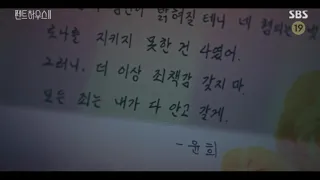 펜트하우스II
SBS
19
밝혀질 테니 네
로나를 지키지 못한 건 나였어.
그러니, 더 이상 죄책감 갖지 마.
모든 죄는 내가 다 안고 갈게.
- 윤희